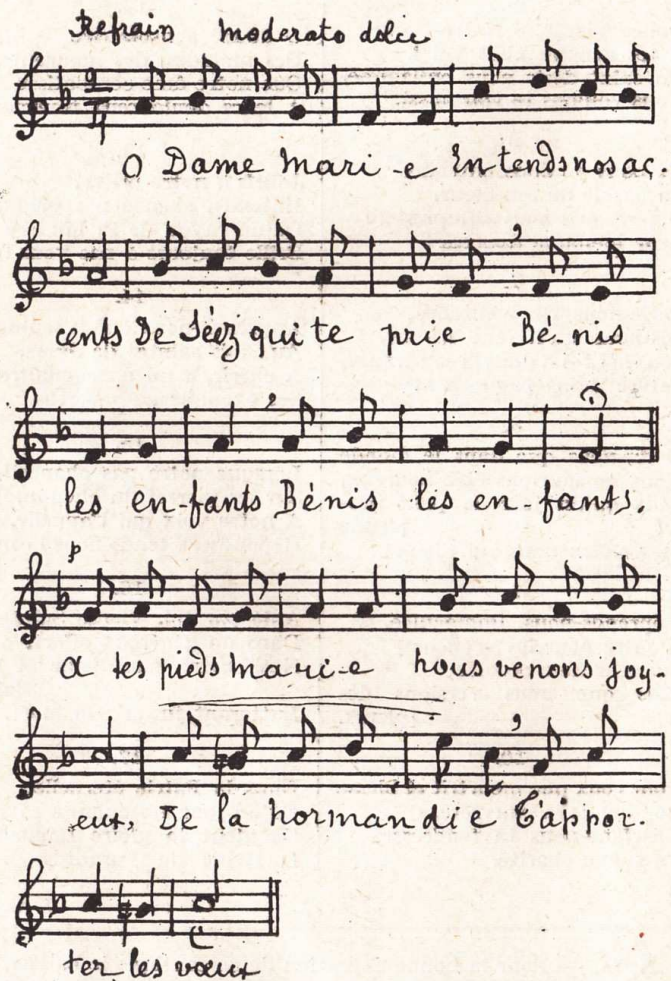 Refrain moderato dolce
O Dame Mari-e Entends nos ac-
cents De Séez qui te prie Bé-nis
les en-fants Bénis les en-fants.
p
A tes pieds Mari-e nous venons joy-
eux, De la normandie t'appor-
ter les vœux